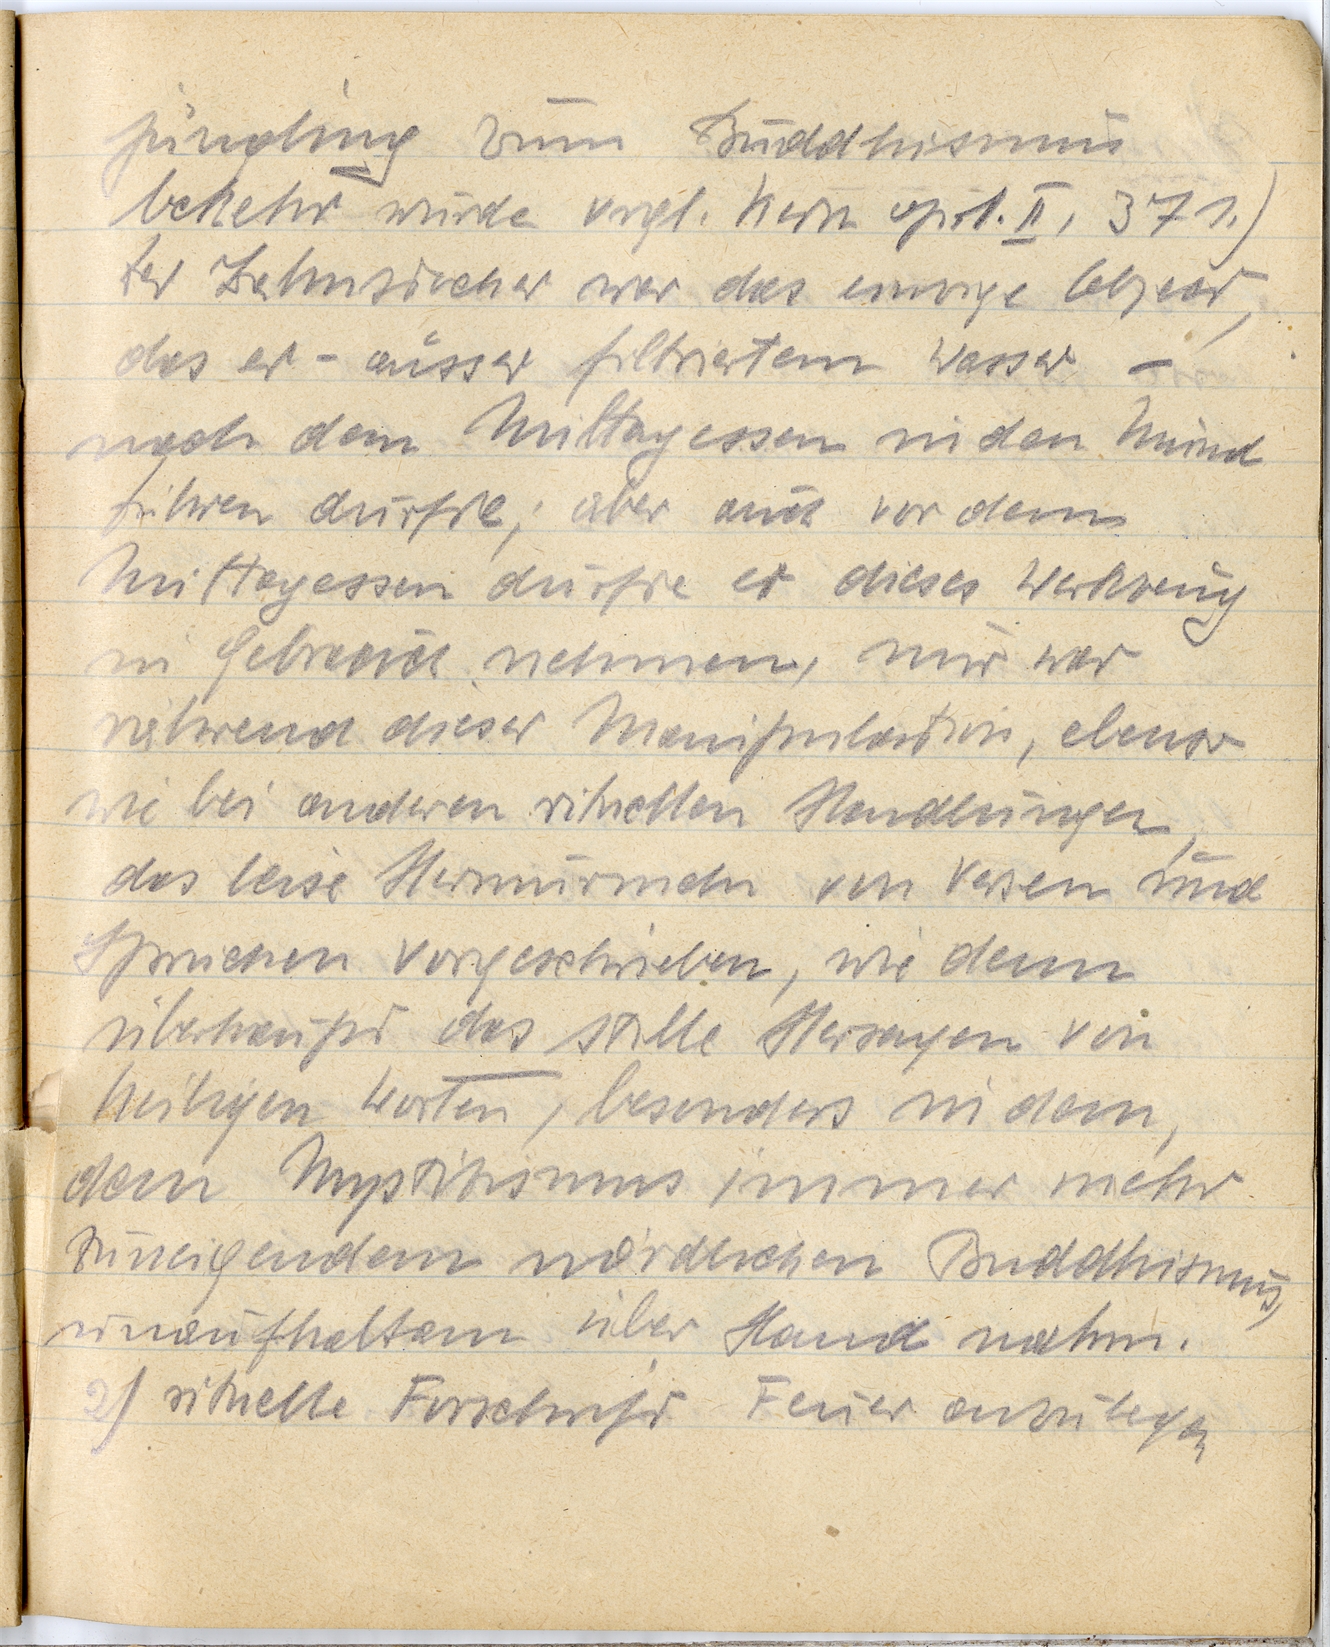 jüngling zum Buddhismus
bekehrt wurde vrgl. Kern II, 37 1.)
Der Zahnstocher war das einzige Objekt,
das er - ausser filtriertem Wasser -
nach dem Mittagessen in den Mund
führen durfte; aber auch vor dem
Mittagessen durfte er dieses Werkzeug
in Gebrauch nehmen, nur war
während dieser Manipulation, ebenso
wie bei anderen rituellen Handlungen,
das leise Hermurmeln von Versen und
Sprüchen vorgeschrieben, wie denn
überhaupt das stille Hersagen von
heiligen Worten, besonders in dem,
dem Mystizismus immer mehr
zuneigendem nördlichen Buddhismus,
unaufhaltsam über Hand nahm.
2) rituelle Forschrift Feuer anzulegen